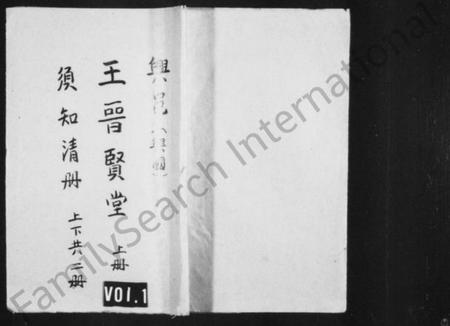 興
王晉賢堂 上册
須知清册 上下共二册
VOl.1
FamilySearch International